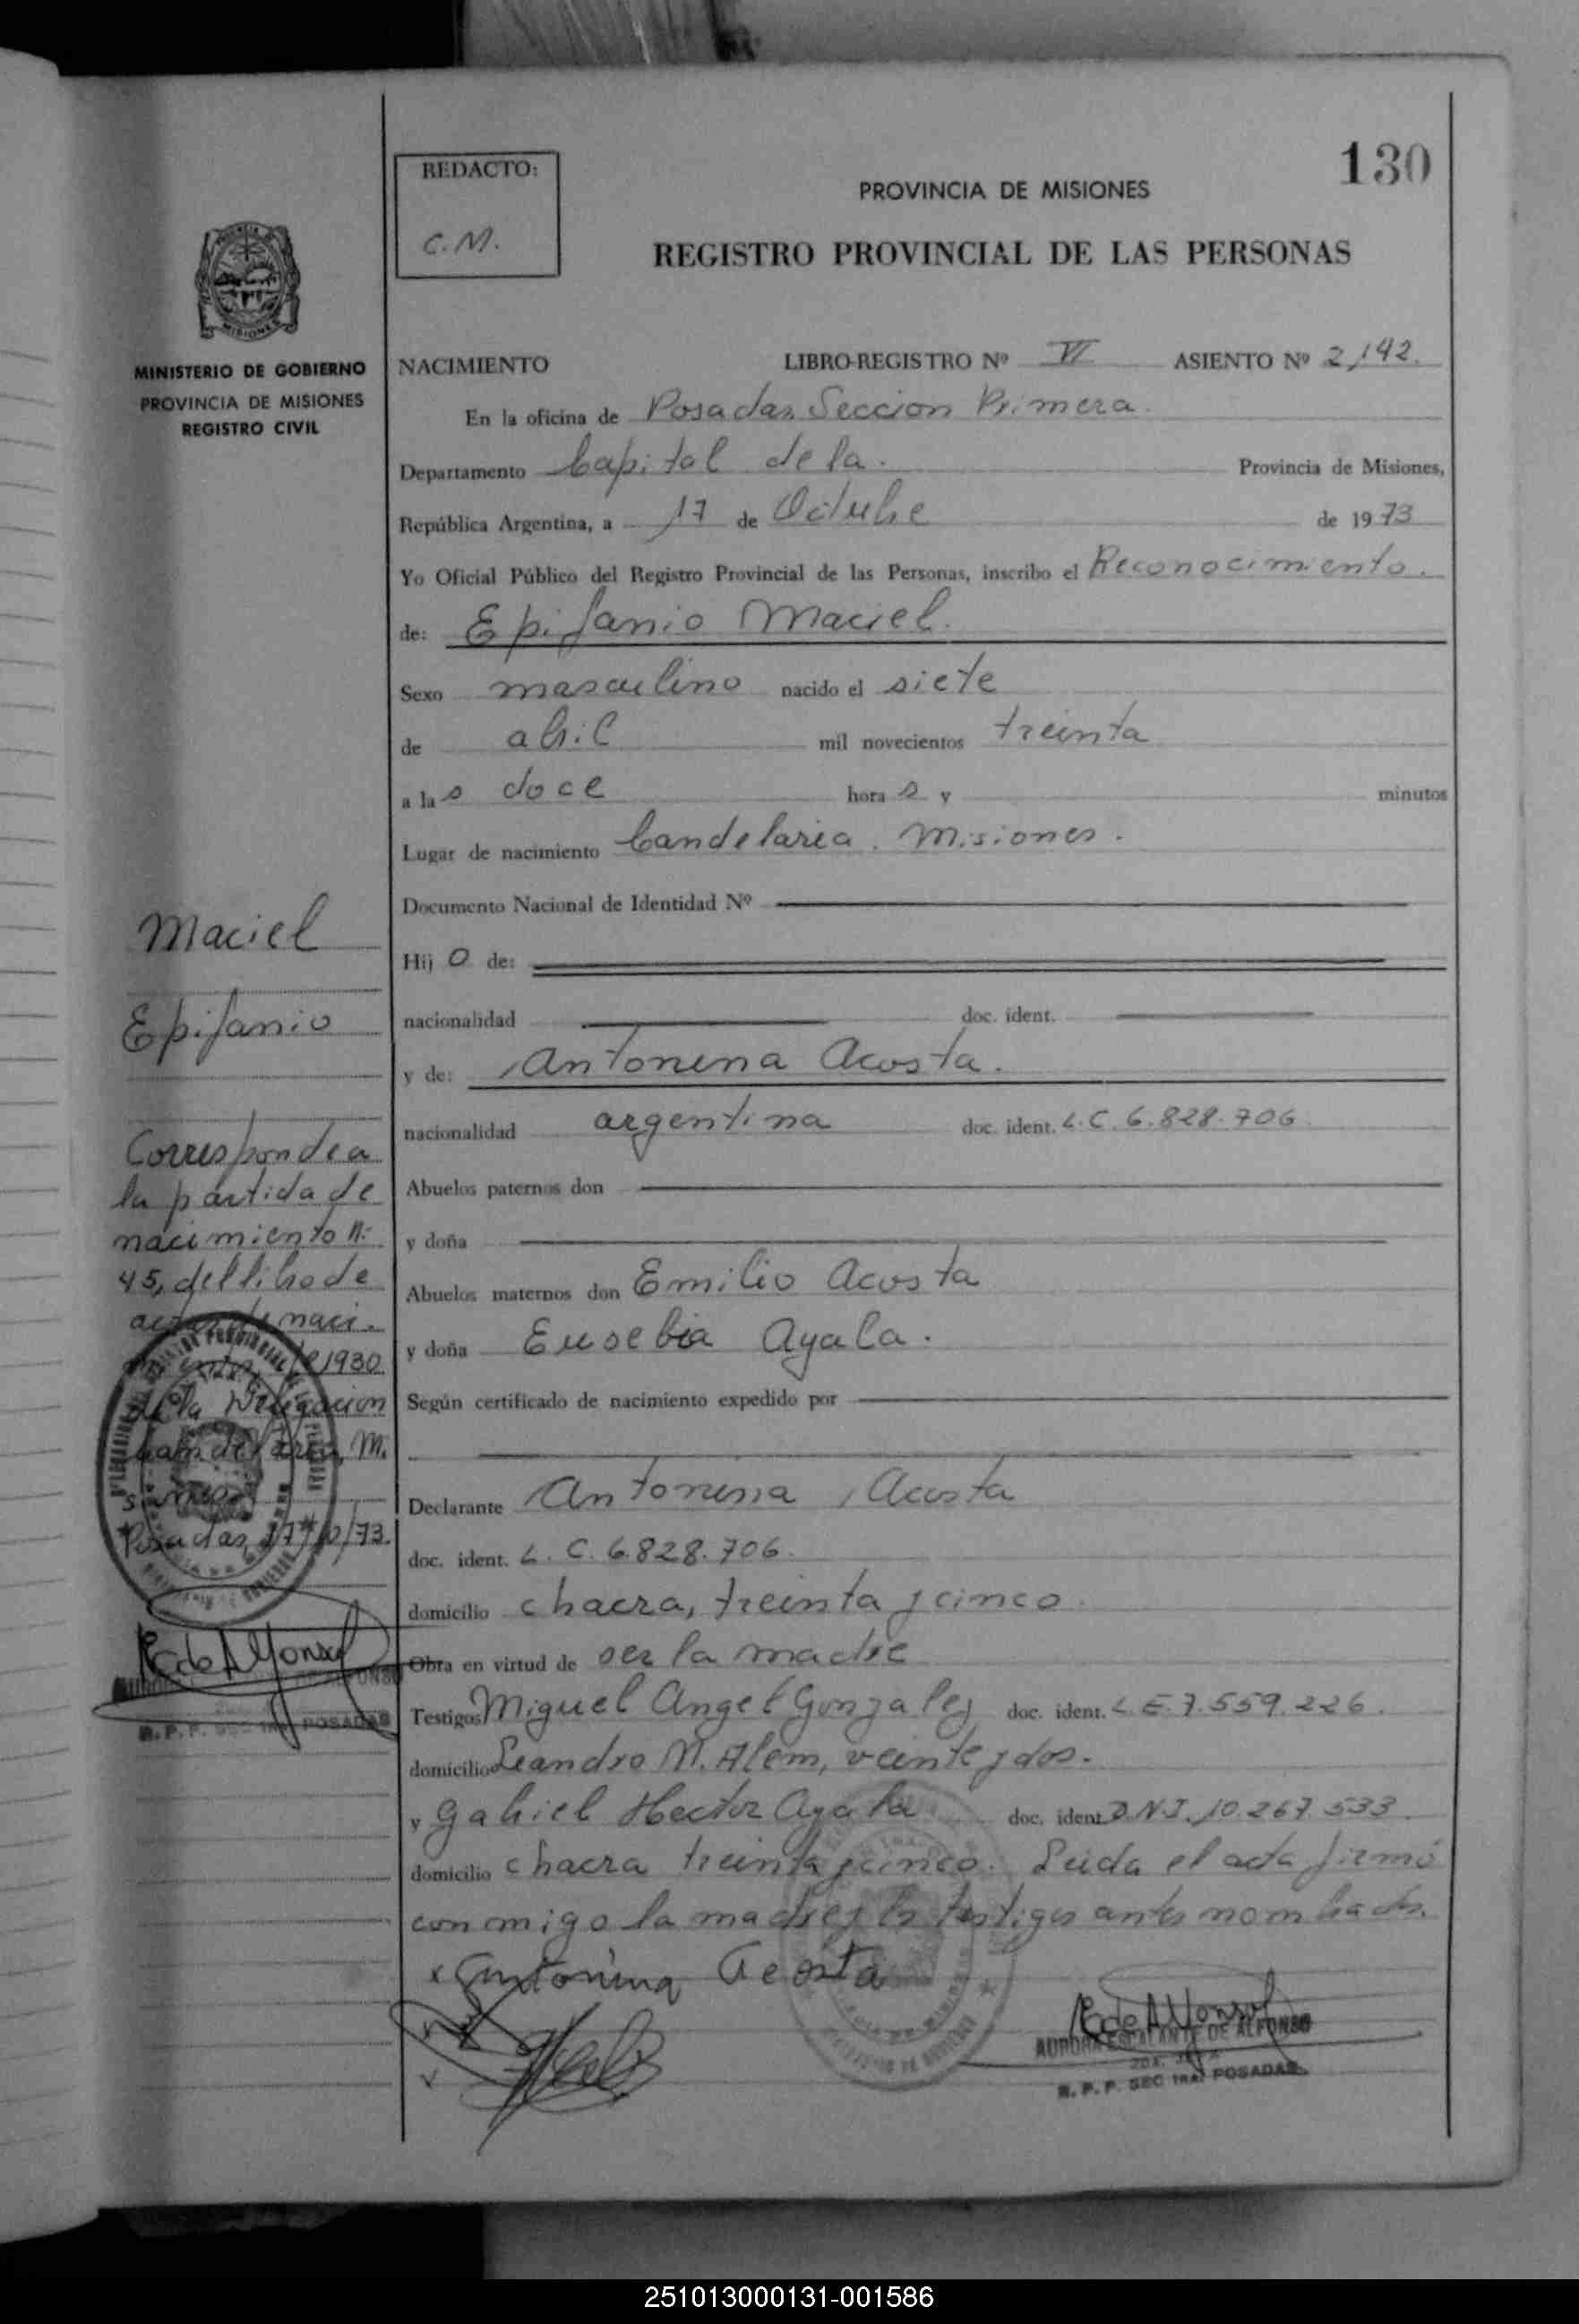 130
REDACTO:
C.M.
PROVINCIA DE MISIONES
REGISTRO PROVINCIAL DE LAS PERSONAS
MINISTERIO DE GOBIERNO
PROVINCIA DE MISIONES
REGISTRO CIVIL
NACIMIENTO LIBRO-REGISTRO Nº VI ASIENTO Nº 2,142.
En la oficina de Posadas Seccion Primera.
Departamento Capital de la. Provincia de Misiones,
República Argentina, a 17 de Octubre de 1973
Yo Oficial Público del Registro Provincial de las Personas, inscribo el Reconocimiento.
de: Epifanio Maciel.
Sexo masculino nacido el siete
de abril mil novecientos treinta
a las doce horas y minutos
Lugar de nacimiento Candelaria. Misiones.
Documento Nacional de Identidad Nº
Hijo de:
nacionalidad doc. ident.
y de: Antonina Acosta.
nacionalidad argentina doc. ident. L.C. 6.828.706
Abuelos paternos don
y doña
Abuelos maternos don Emilio Acosta
y doña Eusebia Ayala.
Según certificado de nacimiento expedido por
Declarante Antonina Acosta
doc. ident. L.C. 6.828.706.
domicilio chacra, treinta y cinco.
Obra en virtud de ser la madre
Testigos Miguel Angel Gonzalez doc. ident. L.E. 7.559.226.
domicilio Leandro N. Alem, veinte y dos.
y Gabriel Hector Ayala doc. ident. D.N.I. 10.267.533.
domicilio chacra treinta y cinco. Leida el acta firmó
conmigo la madre y los testigos antes nombrados.
x Antonina Acosta
Maciel
Epifanio
Corresponde a
la partida de
nacimiento n:
45, del libro de
actas de naci-
miento de 1930
de la Delegacion
Candelaria, M.
siones
Posadas, 17/10/73.
R de Alfonso
R. P. P. SEC 1RA. POSADAS
R de Alfonso
AURORA ESCALANTE DE ALFONSO
R. P. P. SEC 1RA. POSADAS
251013000131-001586